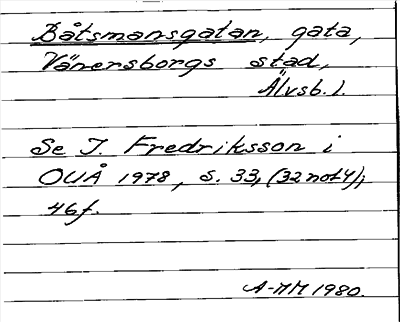 Båtsmansgatan, gata,
Vänersborgs stad,
Älvsb. l.
Se I. Fredriksson i
OUÅ 1978, s. 33, (32 not 4),
46f.
A-MM 1980.